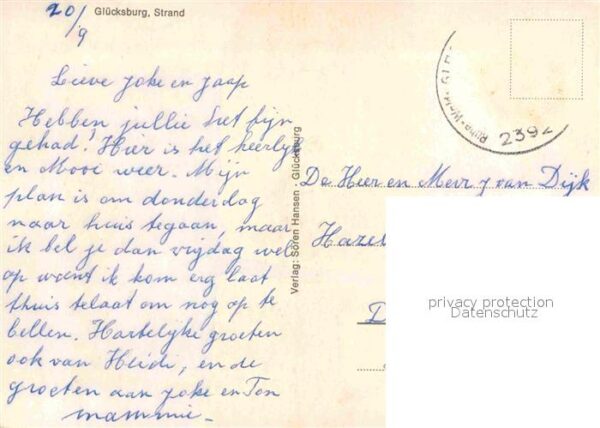 20/9
Glücksburg, Strand
Lieve Joke en Jaap
Hebben jullie het fijn
gehad! Hier is het heerlijk
en Mooi weer. Mijn
plan is om donderdag
naar huis tegaan, maar
ik bel je dan vrijdag wel
op want ik kom erg laat
thuis telaat om nog op te
bellen. Hartelijke groeten
ook van Heidi, en de
groeten aan Joke en Ton
mammie.
Verlag: Sören Hansen - Glücksburg
2392
De Heer en Mevr J van Dijk
Hazel
D
privacy protection
Datenschutz